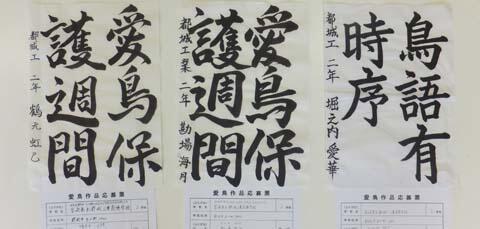 愛鳥保
護週間
都城工 二年 鶴元虹乙
愛鳥作品応募票
愛鳥保
護週間
都城工業 二年 勘場海月
愛鳥作品応募票
鳥語有
時序
都城工 二年 堀之内愛華
愛鳥作品応募票